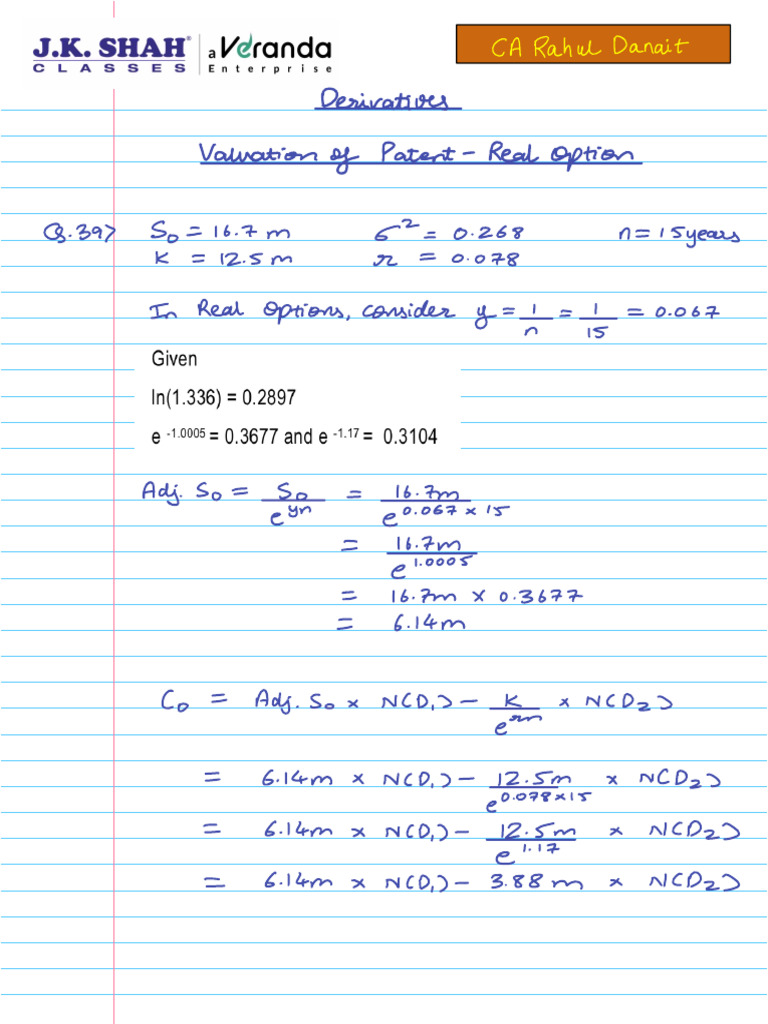 J.K. SHAH® a Veranda
CLASSES Enterprise
CA Rahul Danait
Derivatives
Valuation of Patent - Real Option
Q.39> S₀ = 16.7 m σ² = 0.268 n = 15 years
K = 12.5 m r = 0.078
In Real Options, consider y = 1/n = 1/15 = 0.067
Given
ln(1.336) = 0.2897
e -1.0005 = 0.3677 and e -1.17 = 0.3104
Adj. S₀ = S₀/e^yn = 16.7m/e^0.067 x 15
= 16.7m/e^1.0005
= 16.7m x 0.3677
= 6.14m
C₀ = Adj. S₀ x N(D₁) - K/e^rn x N(D₂)
= 6.14m x N(D₁) - 12.5m/e^0.078x15 x N(D₂)
= 6.14m x N(D₁) - 12.5m/e^1.17 x N(D₂)
= 6.14m x N(D₁) - 3.88 m x N(D₂)